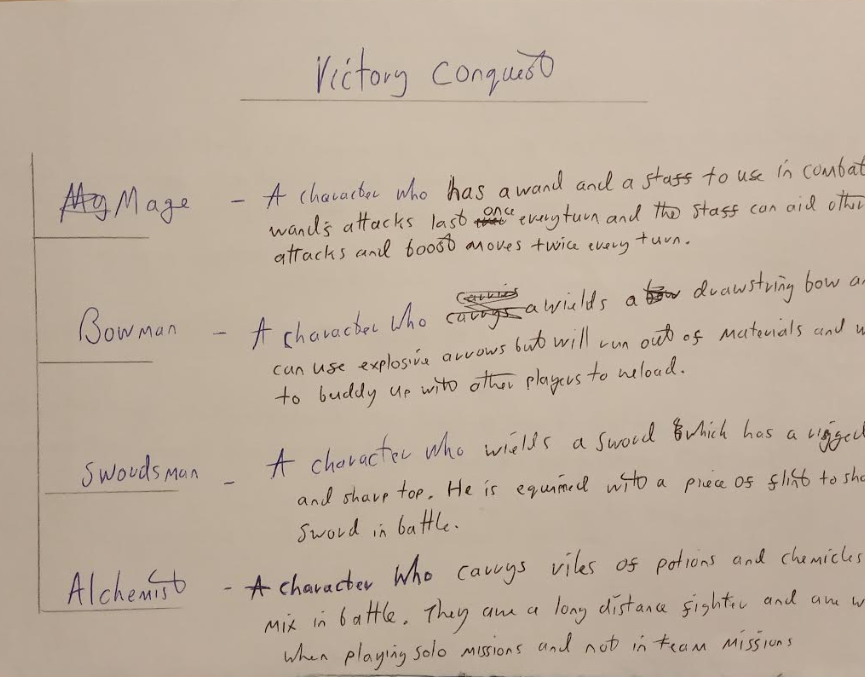 Victory Conquest
Mage - A character who has a wand and a staff to use in combat
wands attacks last once every turn and the staff can aid other
attacks and boost moves twice every turn.
Bowman - A character who a wields a drawstring bow
can use explosive arrows but will run out of materials and
to buddy up with other players to reload.
Swordsman - A character who wields a sword which has a rigged
and sharp top. He is equimed with a piece of flint to
sword in battle.
Alchemist - A character who carrys viles of potions and chemicles
mix in battle. They are a long distance fighter and are
when playing solo missions and not in team missions